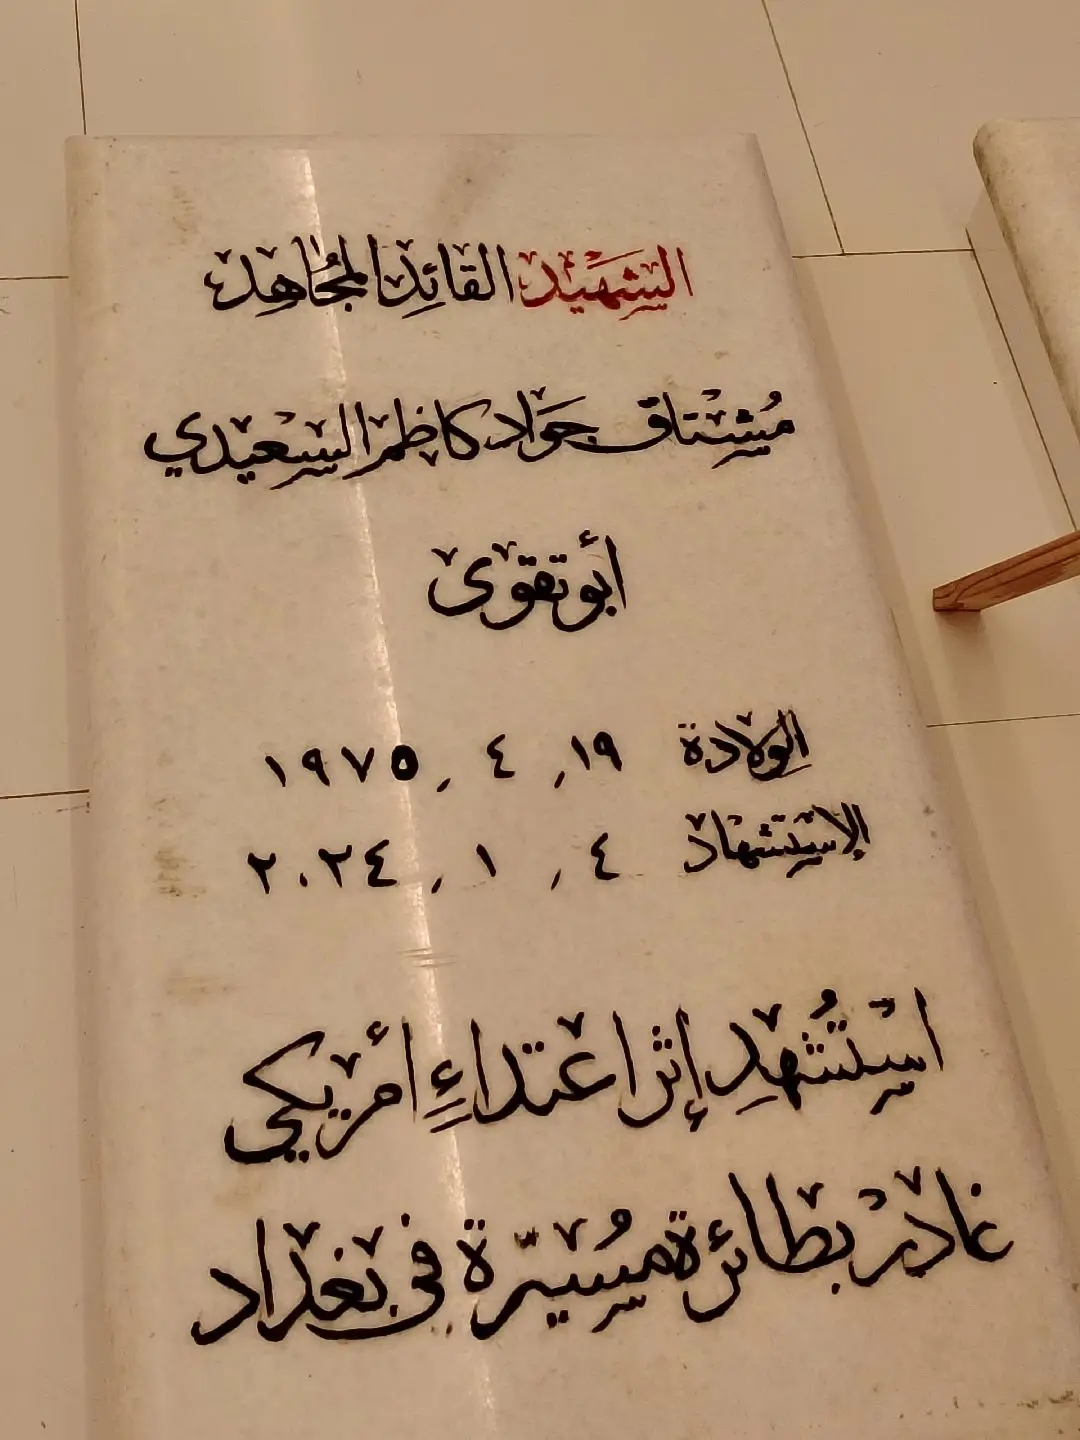 الشهيد القائد المجاهد
مشتاق جواد كاظم السعيدي
أبو تقوى
الولادة ١٩ , ٤ , ١٩٧٥
الإستشهاد ٤ , ١ , ٢٠٢٤
استُشهِد إثر اعتداءٍ أمريكي
غادر بطائرة مُسيّرة في بغداد